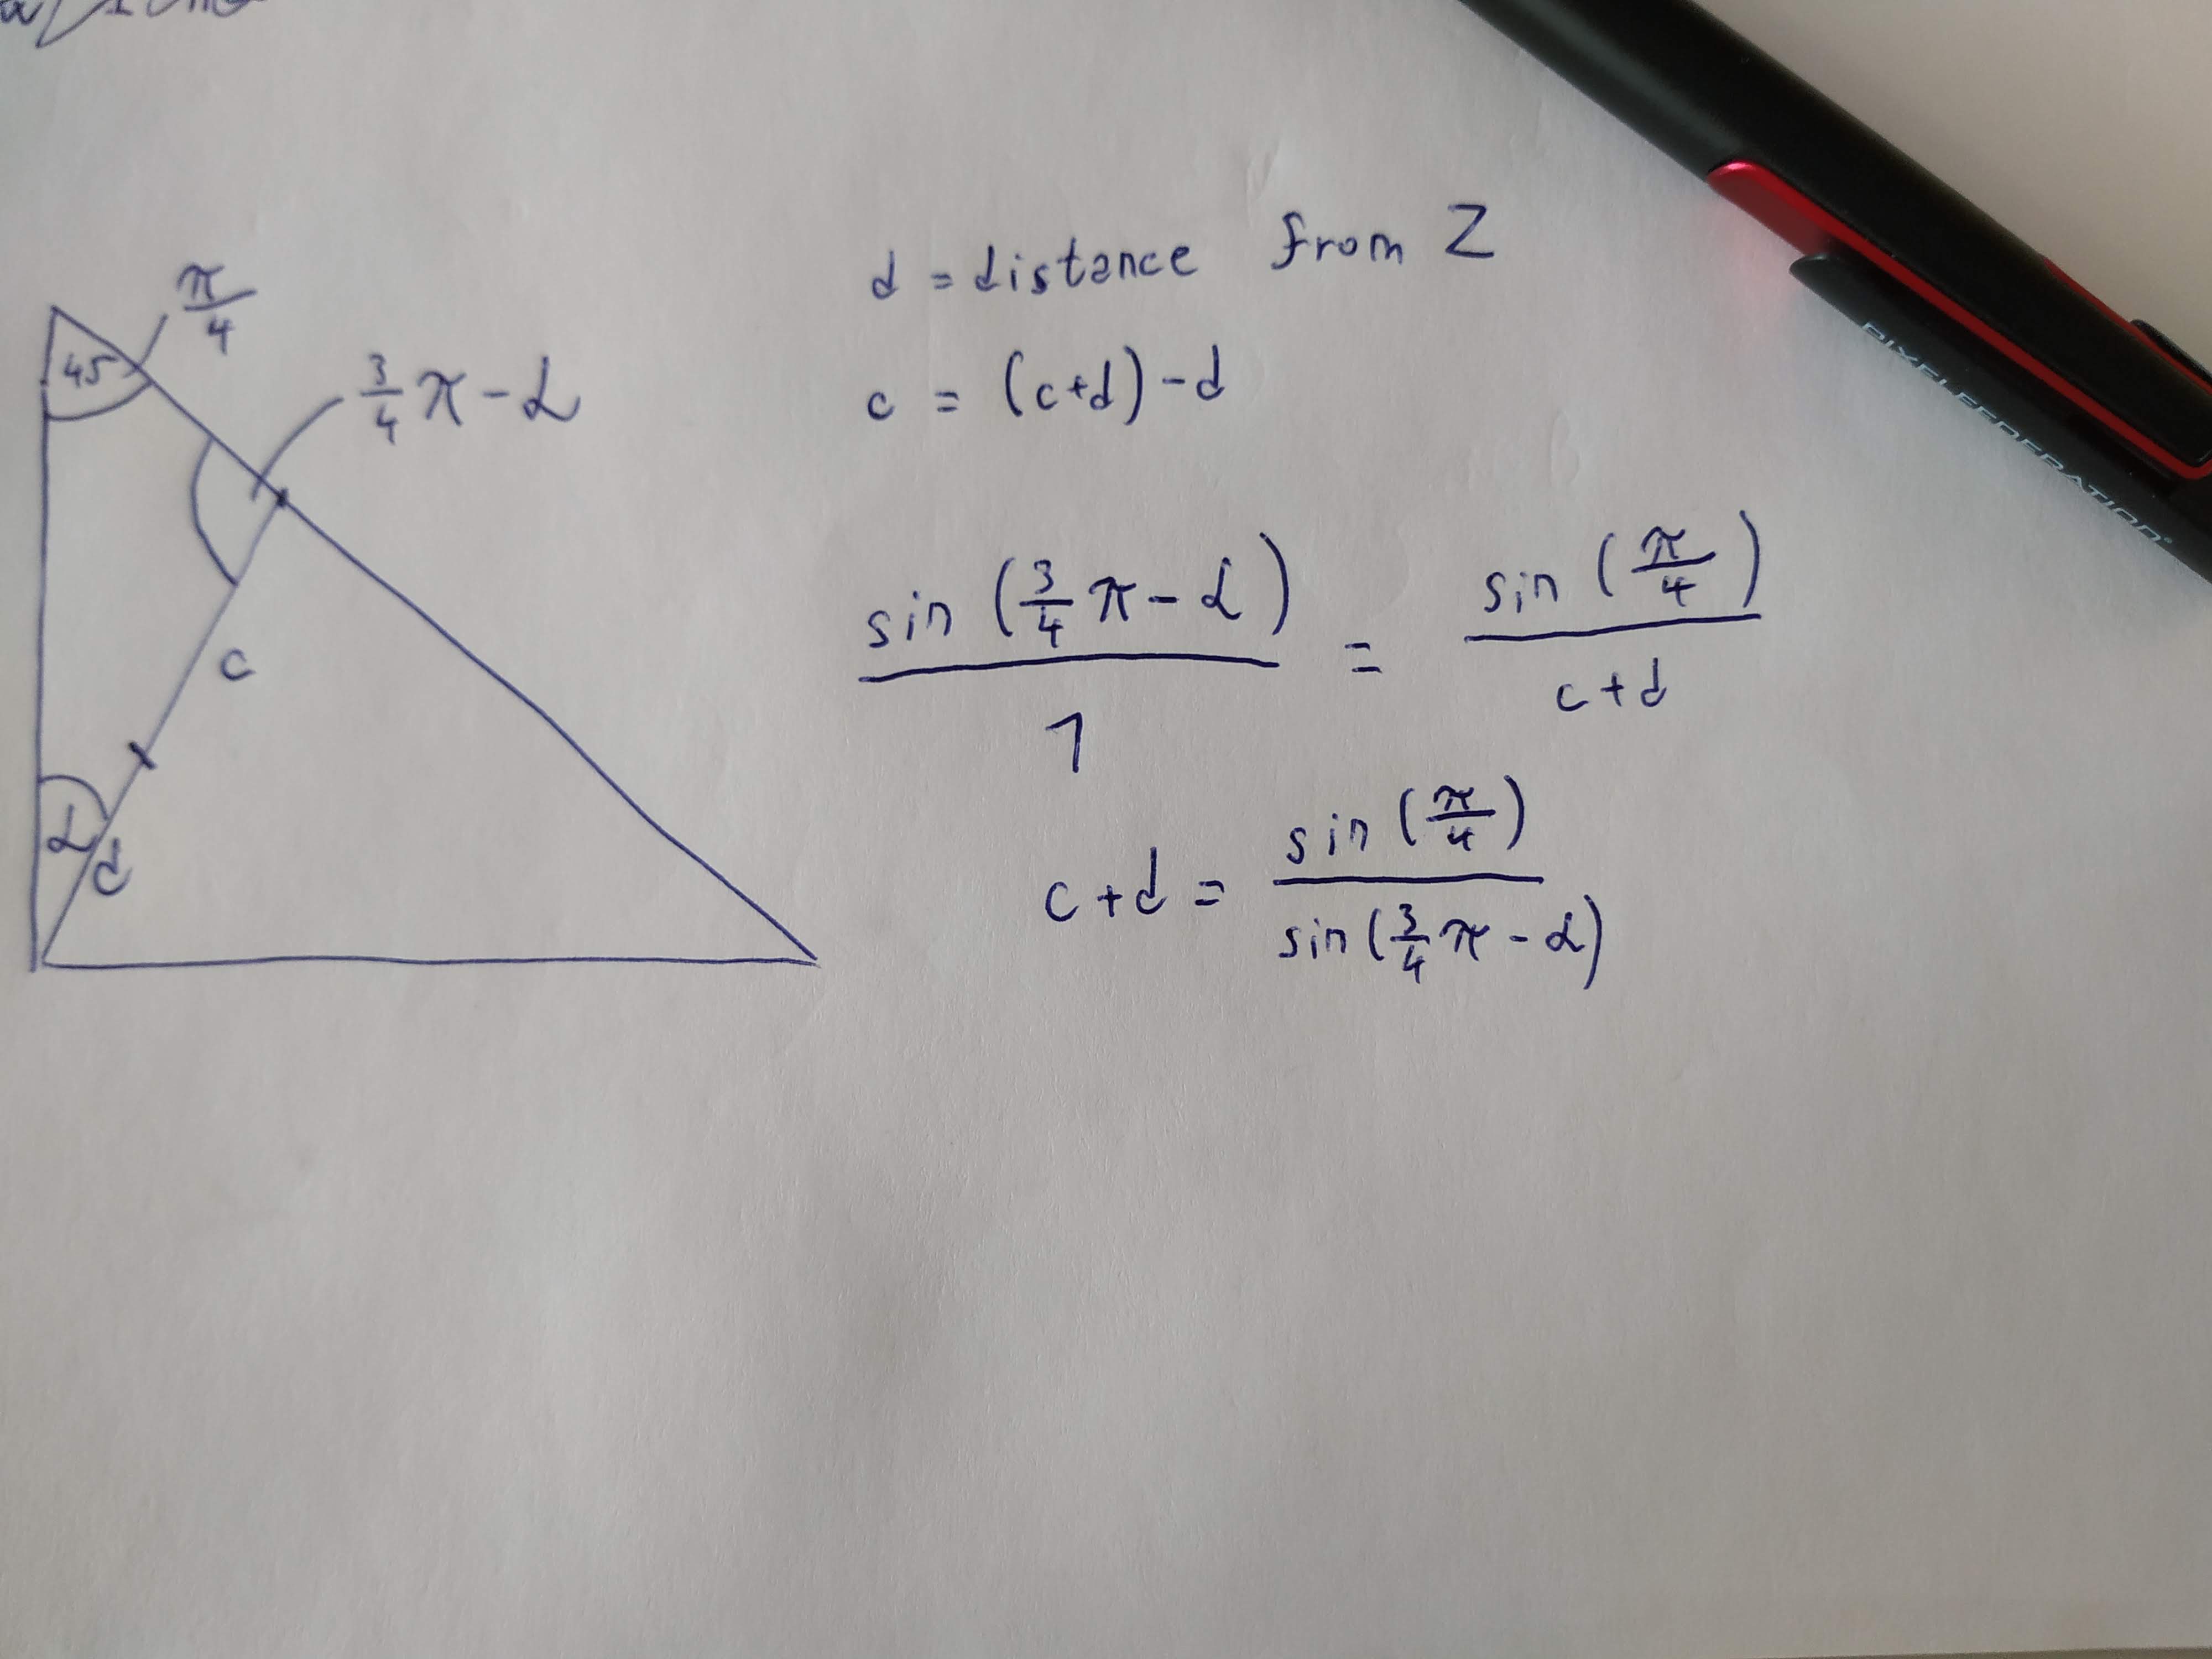 π/4
45
3/4 π - α
c
α
d
d = distance from Z
c = (c+d) - d
sin (3/4 π - α) / 1 = sin (π/4) / c+d
c+d = sin (π/4) / sin (3/4 π - α)
PIXELFEDERATION